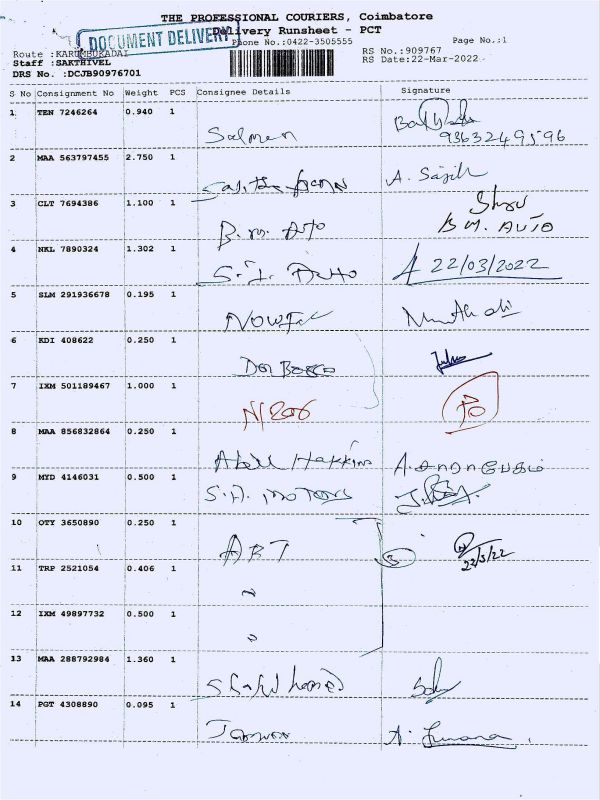 THE PROFESSIONAL COURIERS, Coimbatore
DOCUMENT DELIVERY
Delivery Runsheet - PCT
Phone No.:0422-3505555
Page No.:1
Route :KARUMBUKADAI
RS No.:909767
Staff :SAKTHIVEL
RS Date:22-Mar-2022
DRS No. :DCJB90976701
S No Consignment No Weight PCS Consignee Details Signature
1 TEN 7246264 0.940 1
Salman
9363249596
2 MAA 563797455 2.750 1
A. Sajith
3 CLT 7694386 1.100 1
B.M. Auto
B M. AUTO
4 NKL 7890324 1.302 1
S.I. Auto 22/03/2022
5 SLM 291936678 0.195 1
6 KDI 408622 0.250 1
Don Bosco
7 IXM 501189467 1.000 1
8 MAA 856832864 0.250 1
Abdul Hakkim
9 MYD 4146031 0.500 1
S.H. MOTORS
10 OTY 3650890 0.250 1
ART 3 22/3/22
11 TRP 2521054 0.406 1
12 IXM 49897732 0.500 1
13 MAA 288792984 1.360 1
14 PGT 4308890 0.095 1